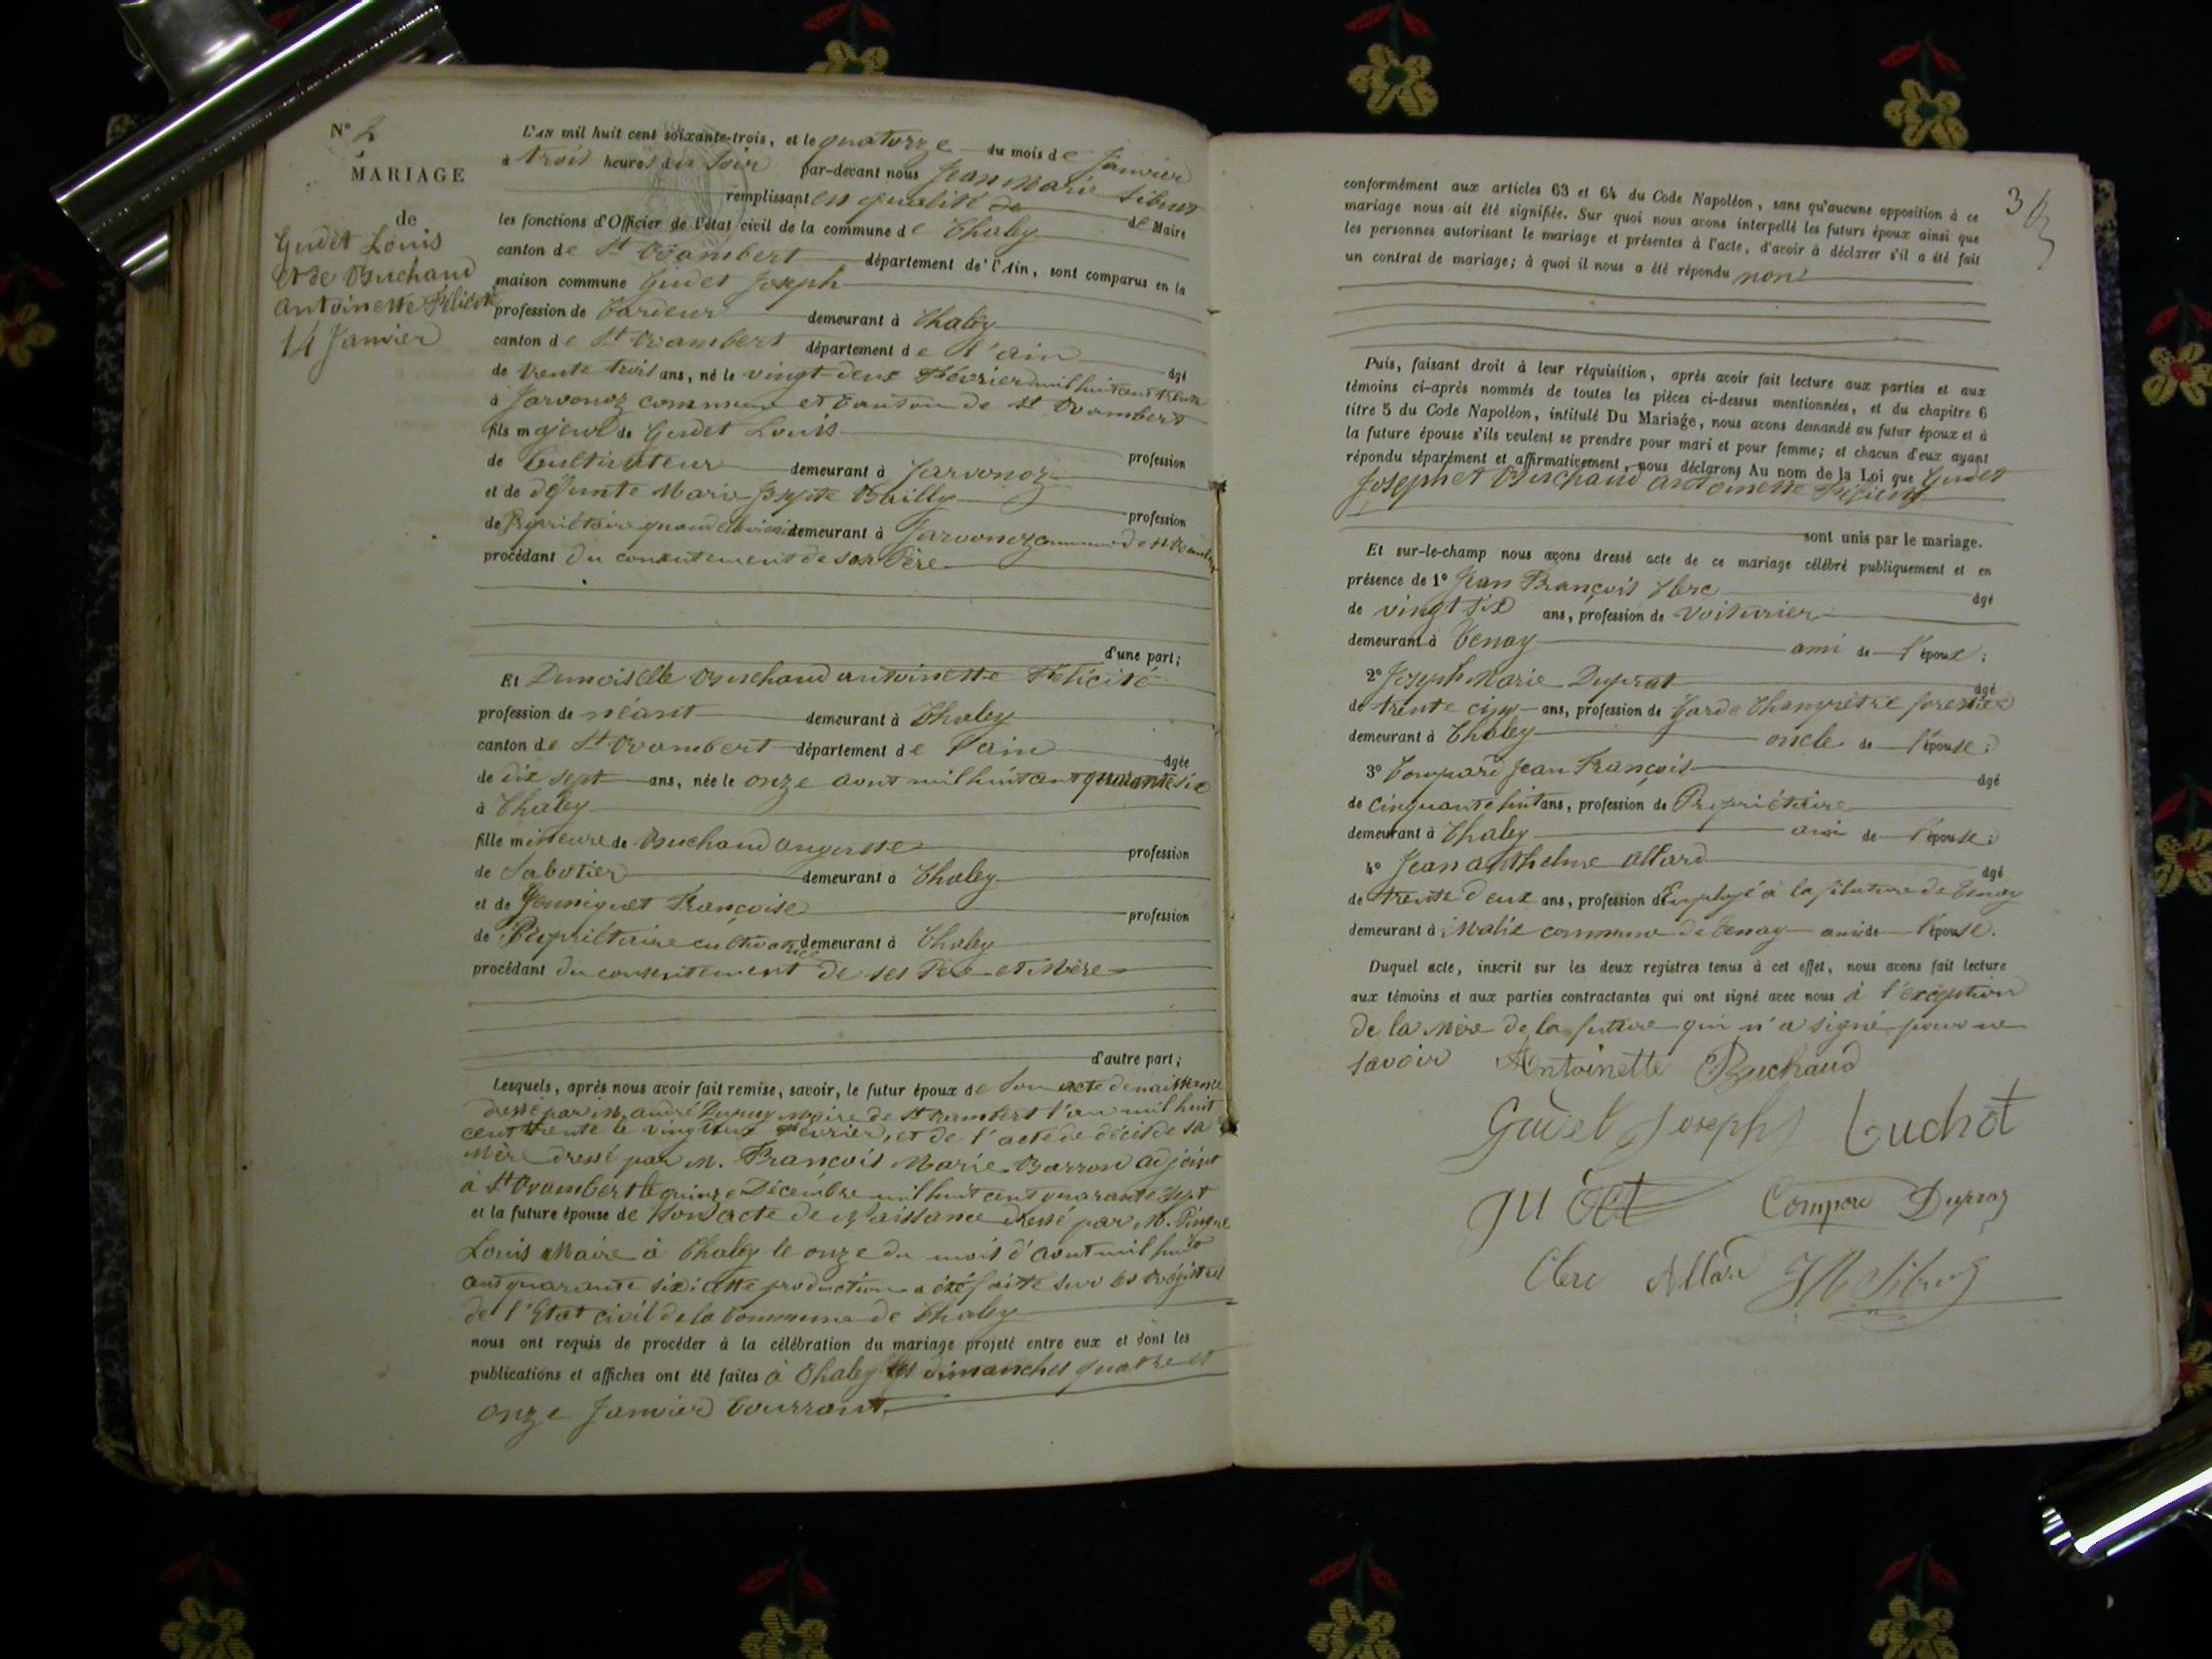 N° 2
MARIAGE
de
Gudet Louis
et de Buchand
Antoinette Félicité
14 Janvier
L'AN mil huit cent soixante-trois, et le quatorze du mois de Janvier
à trois heures du Soir par-devant nous Jean Marie Sibuet
remplissant en qualité de de Maire
les fonctions d'Officier de l'état civil de la commune de Chaley
canton de St Rambert département de l'Ain, sont comparus en la
maison commune Gudet Joseph
profession de Cardeur demeurant à Chaley
canton de St Rambert département de l'ain âgé
de trente trois ans, né le vingt-deux Février mil huit cent trente
à Javornoz commune et Canton de St Rambert
fils majeur de Gudet Louis profession
de Cultivateur demeurant à Javornoz
et de défunte Marie Josephte Bailly profession
de Propriétaire quand elle vivait demeurant à Javornoz commune de St Rambert
procédant du consentement de son Père
d'une part;
Et Demoiselle Buchand antoinette Félicité
profession de néant demeurant à Chaley
canton de St Rambert département de l'ain âgée
de dix sept ans, née le onze aout mil huit cent quarante six
à Chaley
fille mineure de Buchand auguste profession
de Sabotier demeurant à Chaley
et de Françoise profession
de Propriétaire cultivatrice demeurant à Chaley
procédant du consentement de ses Père et Mère
d'autre part;
Lesquels, après nous avoir fait remise, savoir, le futur époux de Son acte de naissance
dressé par M. andré Dupuy Maire de St Rambert l'an mil huit
cent trente le vingt deux Février, et de l'acte de décès de sa
Mère dressé par M. François Marie Barron adjoint
à St Rambert le quinze Décembre mil huit cent quarante Sept
et la future épouse de Son acte de Naissance dressé par M. Pingue
Louis Maire à Chaley le onze du mois d'aout mil huit
cent quarante six; cette production a été faite sur les Régistres
de l'Etat civil de la Commune de Chaley
nous ont requis de procéder à la célébration du mariage projeté entre eux et dont les
publications et affiches ont été faites à Chaley les dimanches quatre et
onze Janvier Courrant
3
conformément aux articles 63 et 64 du Code Napoléon, sans qu'aucune opposition à ce
mariage nous ait été signifiée. Sur quoi nous avons interpellé les futurs époux ainsi que
les personnes autorisant le mariage et présentes à l'acte, d'avoir à déclarer s'il a été fait
un contrat de mariage; à quoi il nous a été répondu non
Puis, faisant droit à leur réquisition, après avoir fait lecture aux parties et aux
témoins ci-après nommés de toutes les pièces ci-dessus mentionnées, et du chapitre 6
titre 5 du Code Napoléon, intitulé Du Mariage, nous avons demandé au futur époux et à
la future épouse s'ils veulent se prendre pour mari et pour femme; et chacun d'eux ayant
répondu séparément et affirmativement, nous déclarons Au nom de la Loi que Gudet
Joseph et Buchand antoinette Félicité
sont unis par le mariage.
Et sur-le-champ nous avons dressé acte de ce mariage célébré publiquement et en
présence de 1° Jean François Clerc âgé
de vingt six ans, profession de voiturier
demeurant à Tenay ami de l'époux;
2° Joseph Marie Duprat âgé
de trente cinq ans, profession de Garde Champêtre forestier
demeurant à Chaley oncle de l'épouse;
3° Compard Jean François âgé
de cinquante huit ans, profession de Propriétaire
demeurant à Chaley ami de l'épouse;
4° Jean anthelme allard âgé
de trente deux ans, profession d'Employé à la filature de Tenay
demeurant à Malix commune de Tenay ami de l'épouse.
Duquel acte, inscrit sur les deux registres tenus à cet effet, nous avons fait lecture
aux témoins et aux parties contractantes qui ont signé avec nous à l'exception
de la Mère de la future qui n'a signé pour ne
savoir Antoinette Buchand
Gudet Joseph Buchot
gudet Compare Dupraz
Clerc Allard JM Sibuet